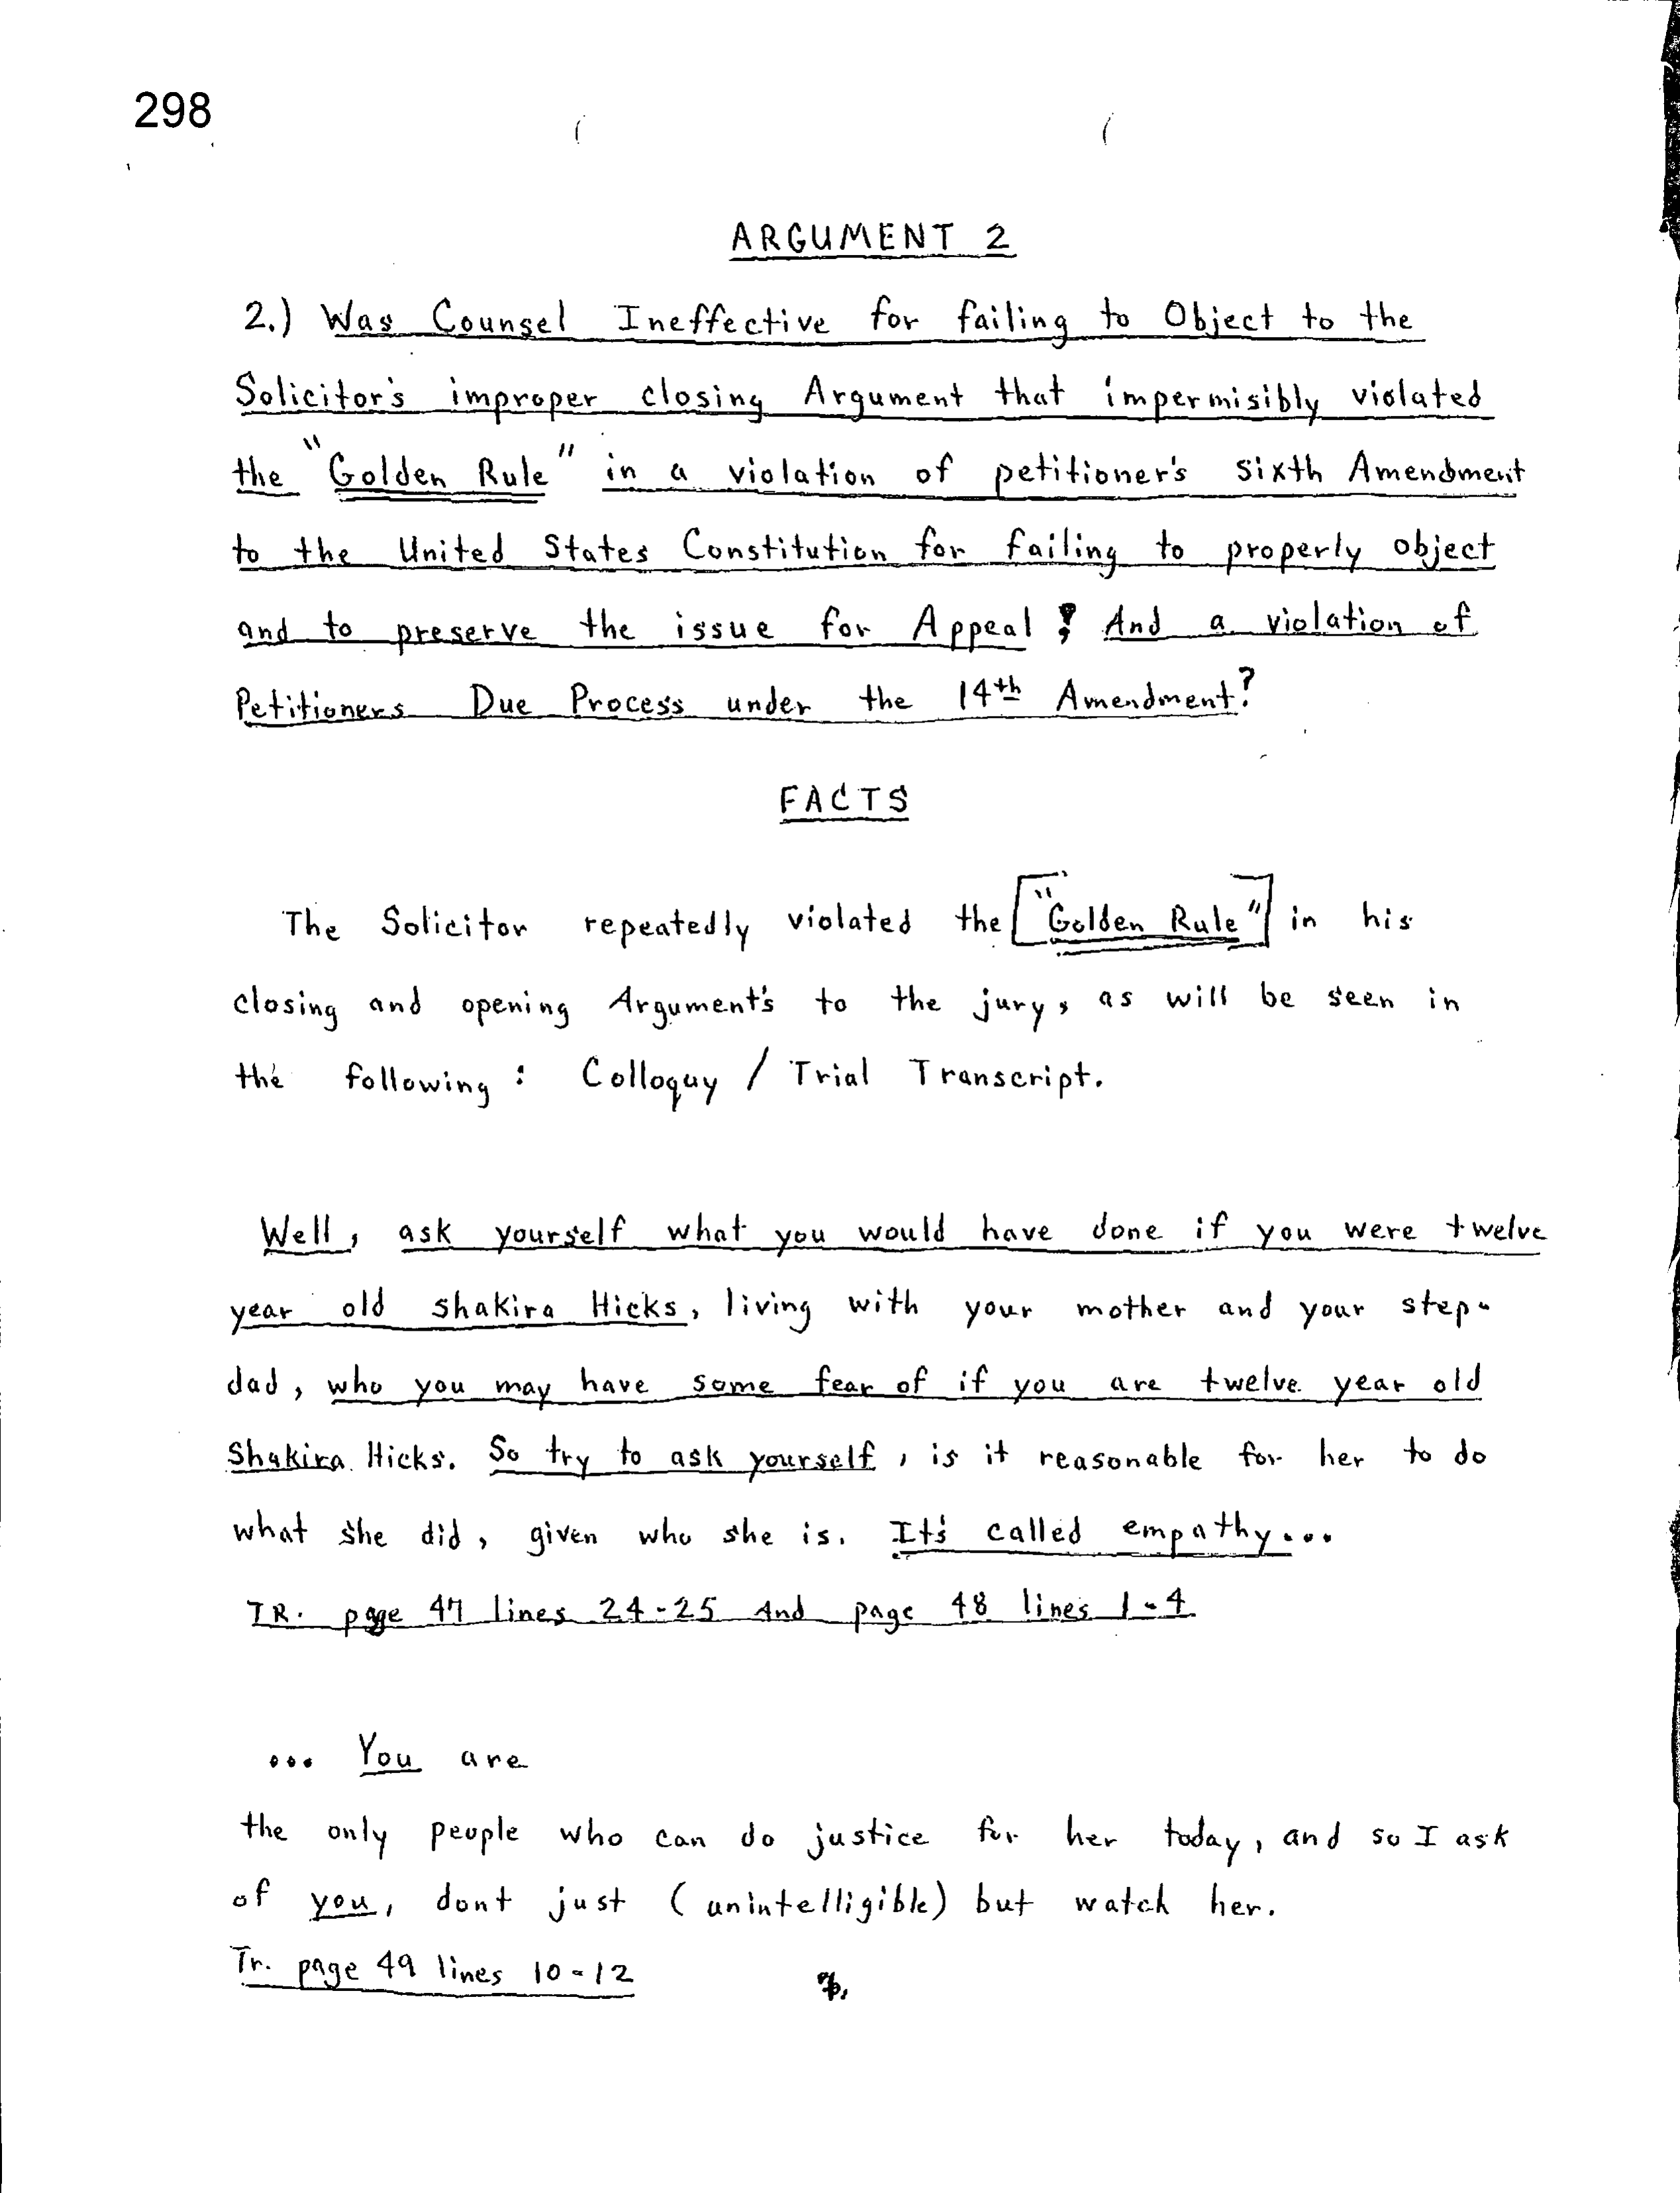 298
ARGUMENT 2
2.) Was Counsel Ineffective for failing to Object to the
Solicitor's improper closing Argument that impermisibly violated
the "Golden Rule" in a violation of petitioner's sixth Amendment
to the United States Constitution for failing to properly object
and to preserve the issue for Appeal ? And a violation of
Petitioners Due Process under the 14th Amendment?
FACTS
The Solicitor repeatedly violated the ["Golden Rule"] in his
closing and opening Argument's to the jury, as will be seen in
the following : Colloquy / Trial Transcript.
Well, ask yourself what you would have done if you were twelve
year old shakira Hicks, living with your mother and your step-
dad, who you may have some fear of if you are twelve year old
Shakira Hicks. So try to ask yourself, is it reasonable for her to do
what she did, given who she is. It's called empathy...
TR. page 47 lines 24-25 And page 48 lines 1-4
... You are
the only people who can do justice for her today, and so I ask
of you, dont just (unintelligible) but watch her.
Tr. page 49 lines 10-12